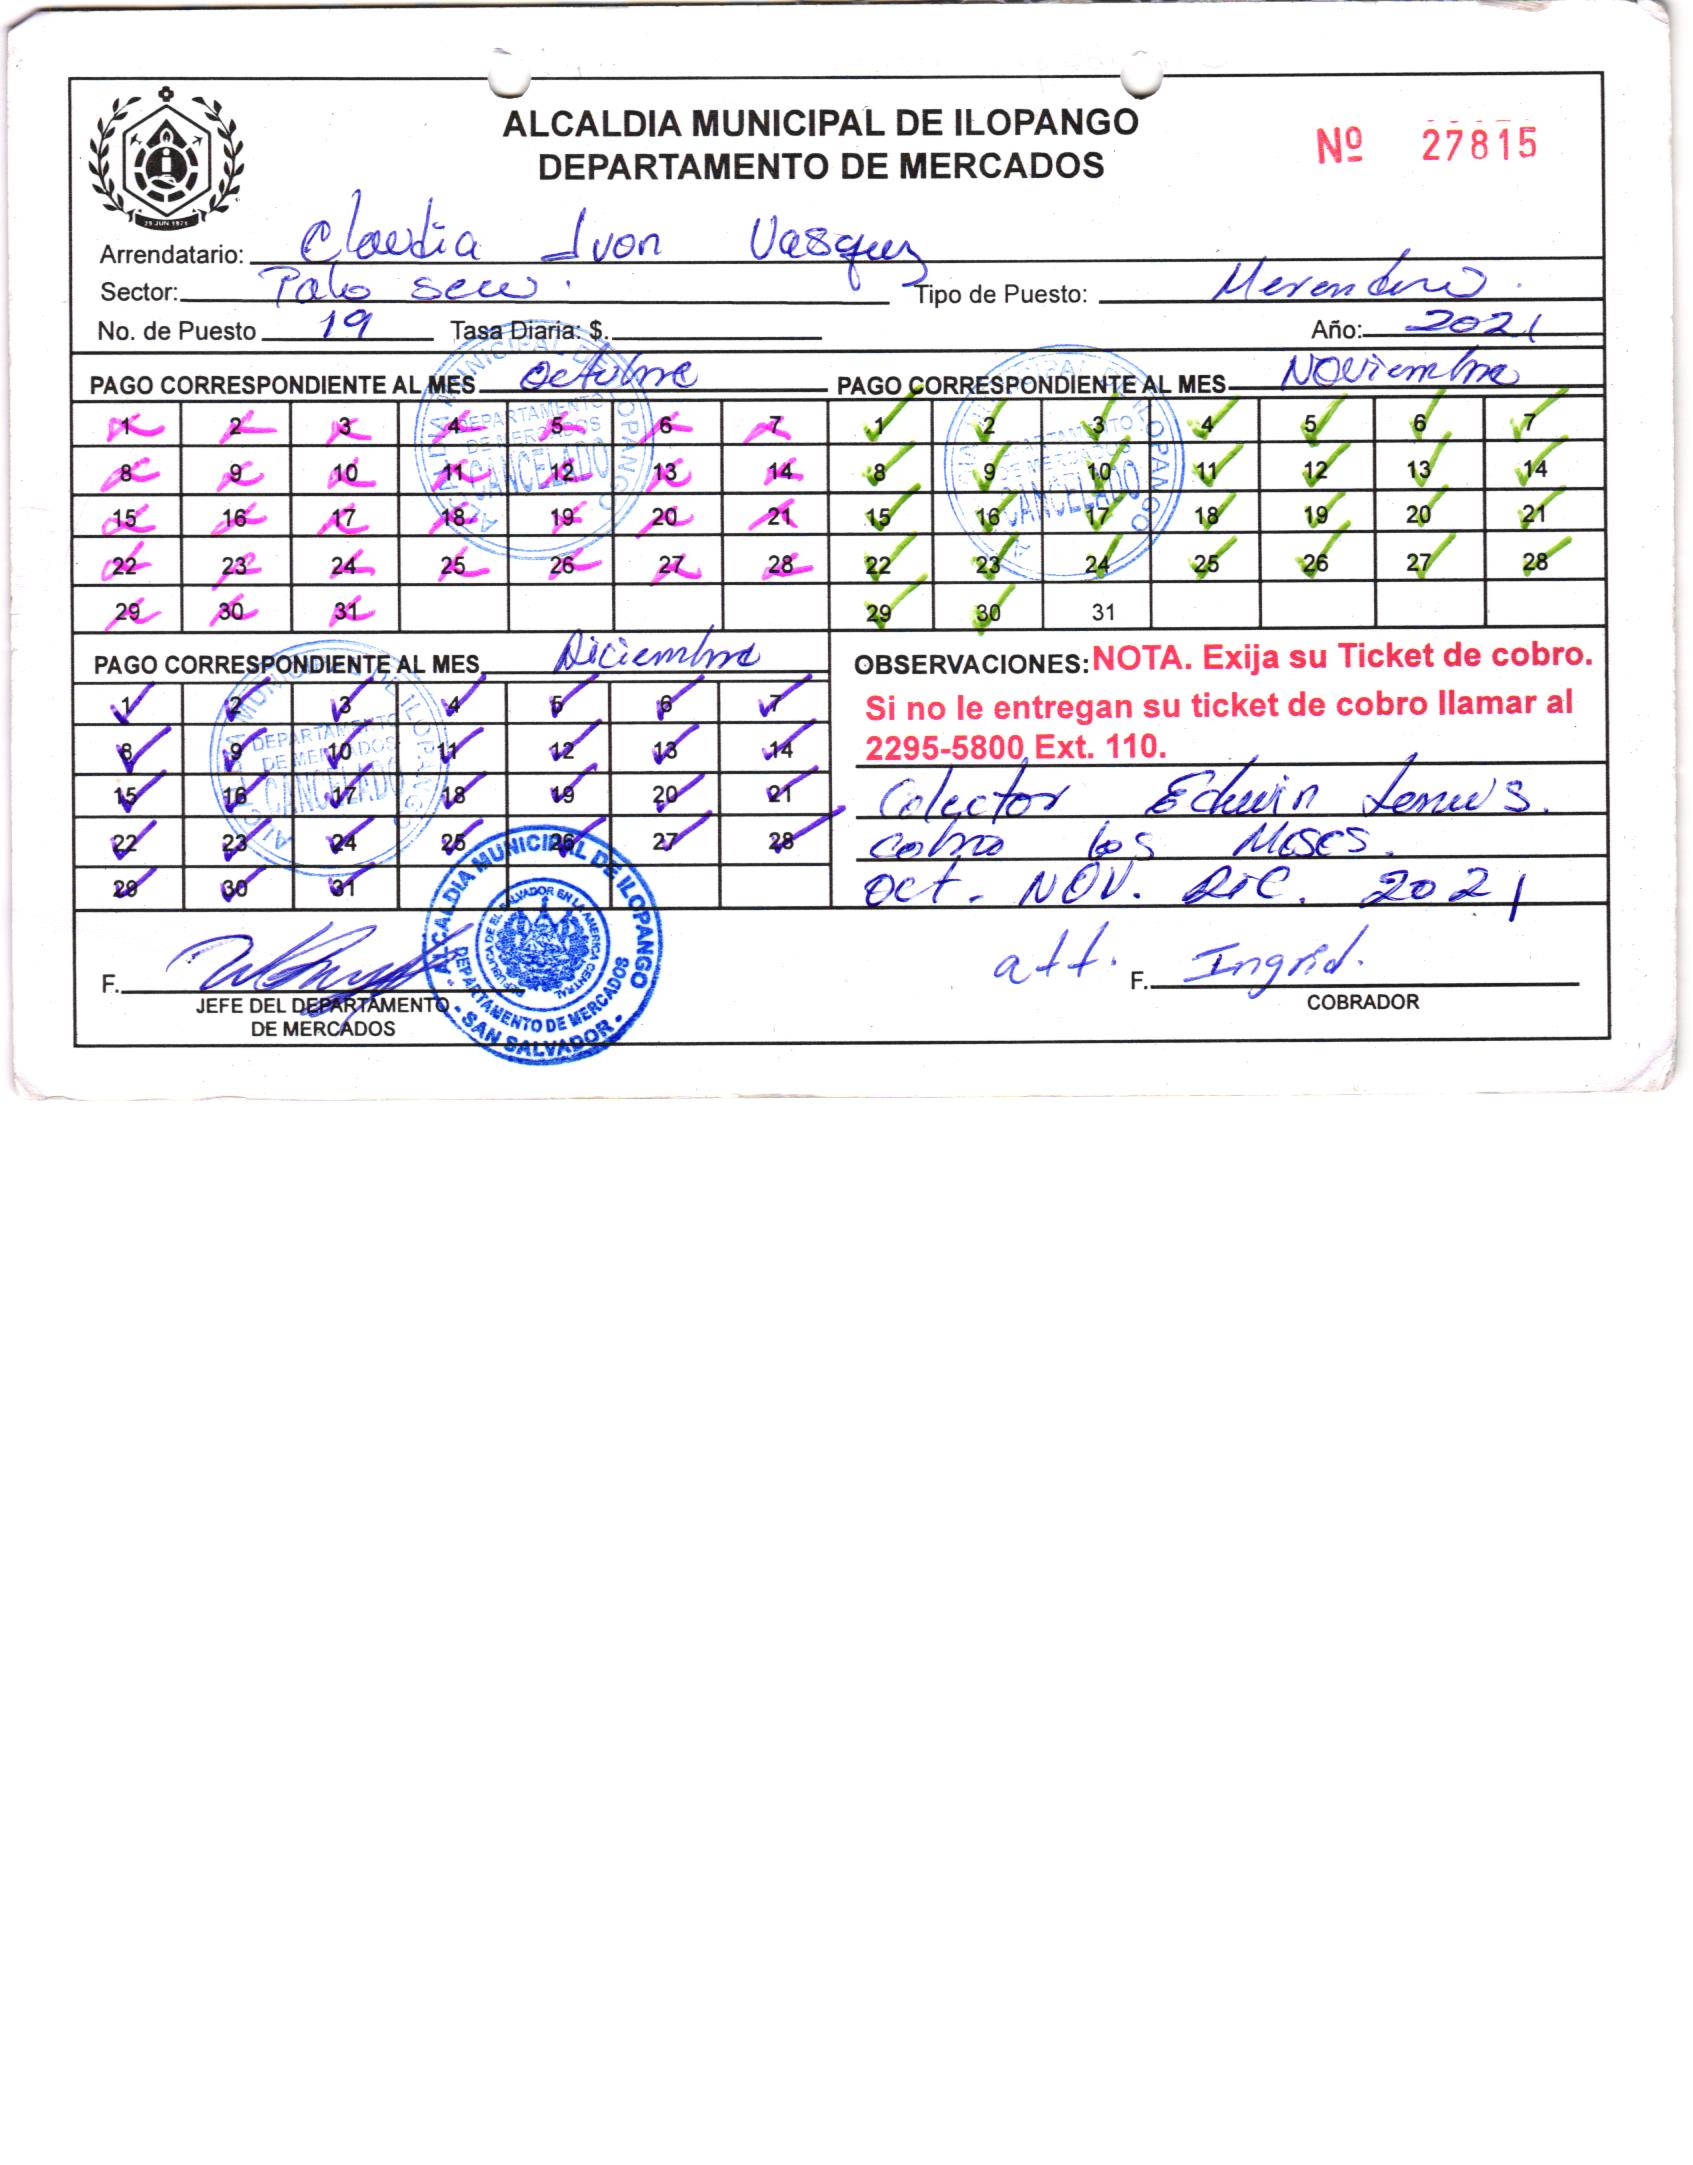 ALCALDIA MUNICIPAL DE ILOPANGO
DEPARTAMENTO DE MERCADOS
Nº 27815
25 JUN 1971
Arrendatario: Claudia Ivon Vasquez
Sector: Palo seco. Tipo de Puesto: Merendero.
No. de Puesto 19 Tasa Diaria: $. Año: 2021
PAGO CORRESPONDIENTE AL MES Octubre PAGO CORRESPONDIENTE AL MES Noviembre
1 2 3 4 5 6 7 1 2 3 4 5 6 7
8 9 10 11 12 13 14 8 9 10 11 12 13 14
15 16 17 18 19 20 21 15 16 17 18 19 20 21
22 23 24 25 26 27 28 22 23 24 25 26 27 28
29 30 31 29 30 31
ALCALDIA MUNICIPAL DE ILOPANGO
DEPARTAMENTO
DE MERCADOS
CANCELADO
ALCALDIA MUNICIPAL DE ILOPANGO
DEPARTAMENTO
DE MERCADOS
CANCELADO
PAGO CORRESPONDIENTE AL MES Diciembre
1 2 3 4 5 6 7
8 9 10 11 12 13 14
15 16 17 18 19 20 21
22 23 24 25 26 27 28
29 30 31
ALCALDIA MUNICIPAL DE ILOPANGO
DEPARTAMENTO
DE MERCADOS
CANCELADO
OBSERVACIONES: NOTA. Exija su Ticket de cobro.
Si no le entregan su ticket de cobro llamar al
2295-5800 Ext. 110.
Colector Edwin Lemus.
cobro los Meses.
Oct. NOV. Dic. 2021
att. F. Ingrid.
COBRADOR
F.
JEFE DEL DEPARTAMENTO
DE MERCADOS
ALCALDIA MUNICIPAL DE ILOPANGO
REPUBLICA DE EL SALVADOR EN LA AMERICA CENTRAL
DEPARTAMENTO DE MERCADOS
- SAN SALVADOR -